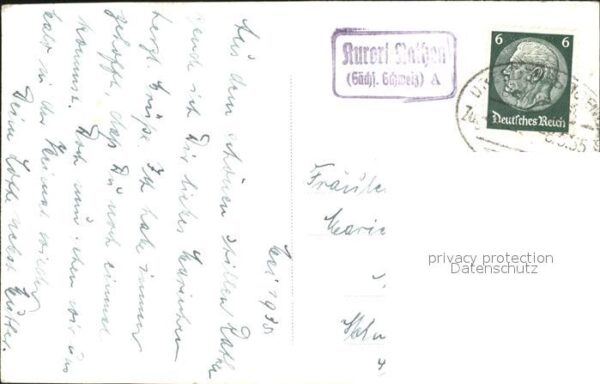 Mai 1935
Aus dem schönen stillen
sende ich Dir liebes Mariechen
herzl. Grüße. Ich habe immer
gehofft, daß Du noch einmal
kommst. Doch nun sehen wir uns
bald in der Heimat wieder
Deine Lotte nebst Mutter.
Kurort Rathen
(Sächs. Schweiz) A
6 6
Deutsches Reich
35
Fräulein
Marie
privacy protection
Datenschutz